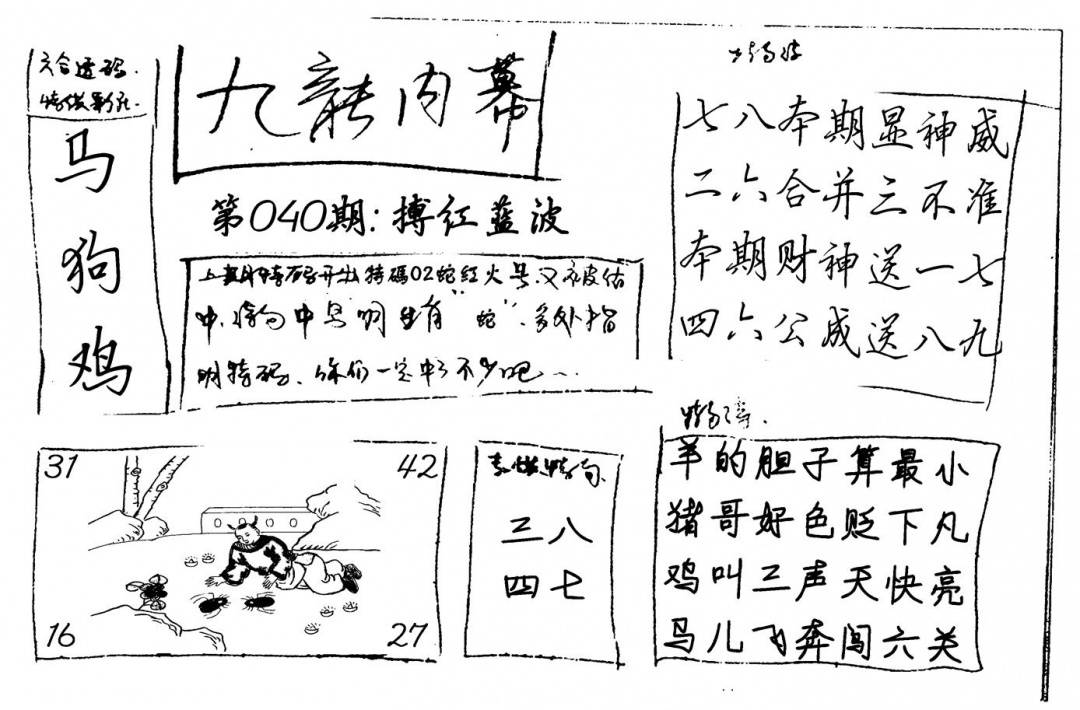 六合透码.
马
狗
鸡
九龍内幕
第040期:搏红蓝波
上期特码开出特碼02蛇红火号又被估
中.中马明生肖"蛇".多处指
明特码.你们一定中了不少吧…
七八本期显神威
二六合并三不准
本期财神送一七
四六公成送八九
31
42
16
27
三八
四七
羊的胆子算最小
猪哥好色贬下凡
鸡叫三声天快亮
马儿飞奔闯六关